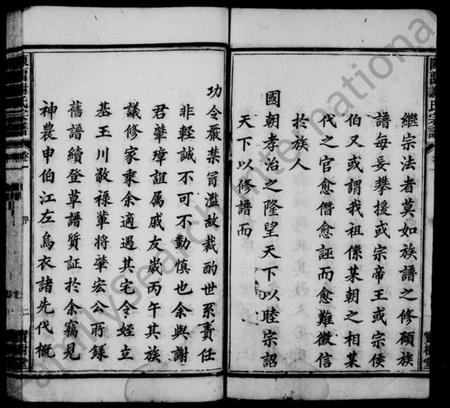 繼宗法者莫如族譜之修顧族
譜每妄攀援或宗帝王或宗侯
伯又或謂我祖係某朝之相某
代之官愈僭愈誣而愈難徵信
於族人
國朝孝治之隆望天下以睦宗詔
天下以修譜而
功令嚴禁冒濫故裁酌世系責任
非輕誠不可不勤慎也余與謝
君葦璋誼属戚友歲丙午其族
議修家乘余適過其宅令姪立
基王川敬禄輩將肇宏公所録
舊譜續登草譜質証於余竊見
神農申伯江左烏衣諸先代概
familysearch international